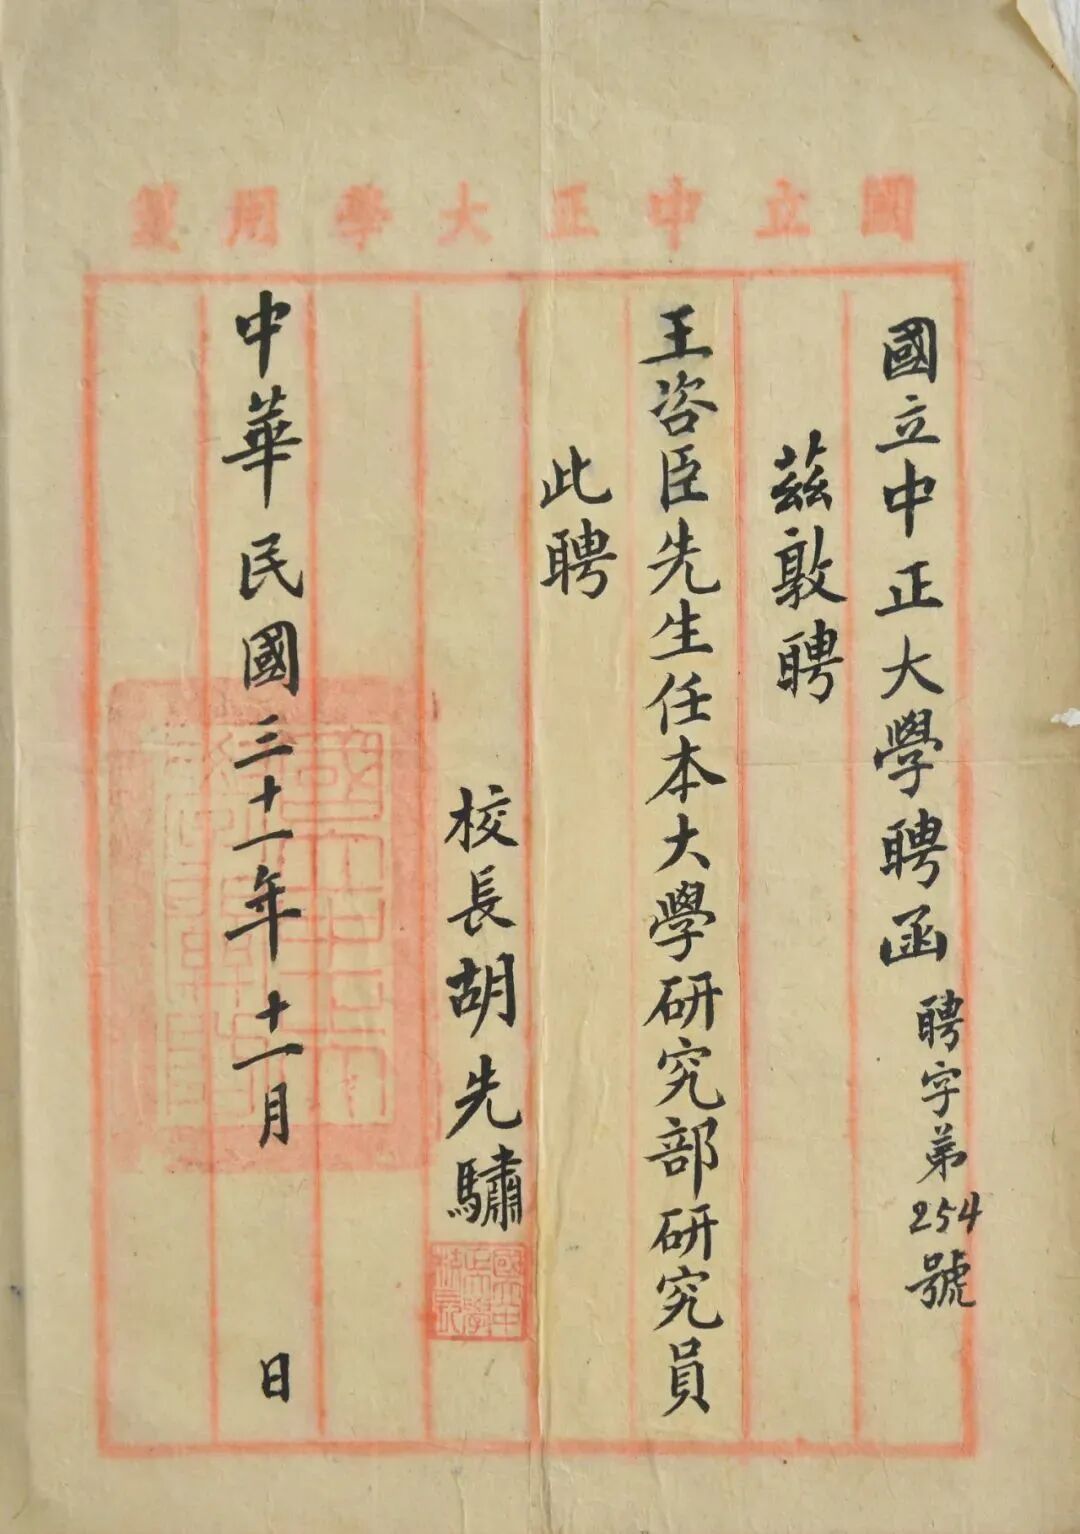 國立中正大學用箋
國立中正大學聘函 聘字第254號
茲敦聘
王咨臣先生任本大學研究部研究員
此聘
校長胡先驌
國立中正大學校長
中華民國三十一年十一月 日